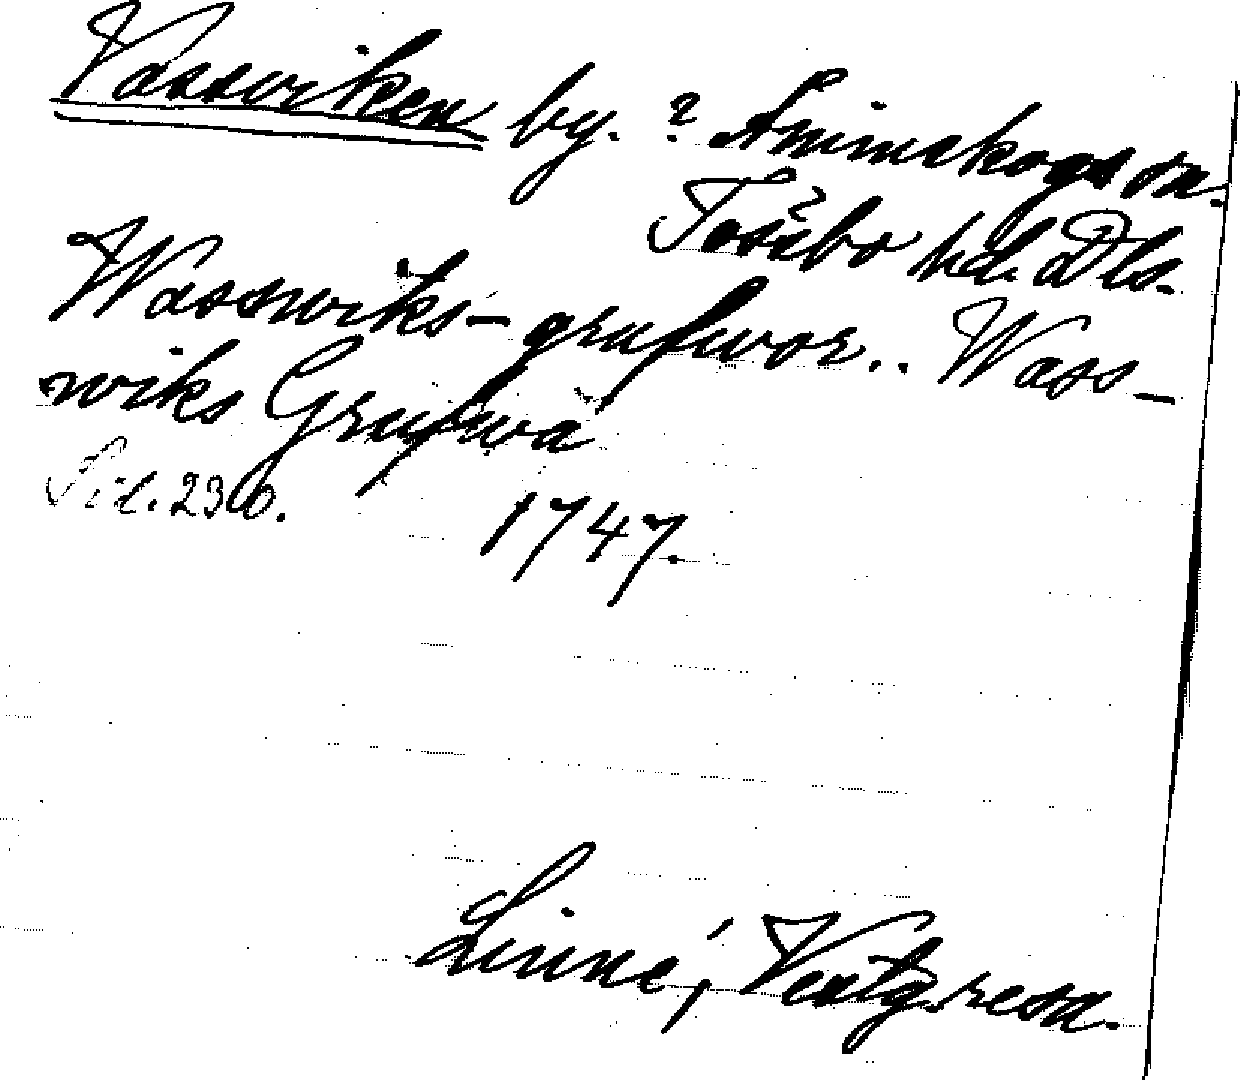 Vasswiken by. ? Ånimskogs sn.
Tössbo hd. Dls.
Wasswiks-grufwor.. Wass-
wiks Grufwa
Sid. 230. 1747.
Linné, Vestg.resa.